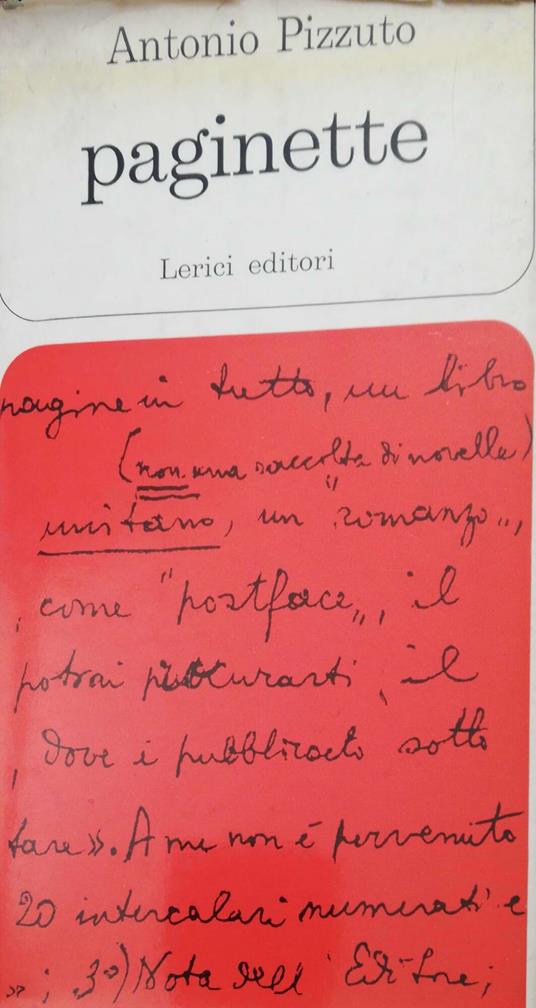 Antonio Pizzuto
paginette
Lerici editori
pagine in tutto, un libro
(non una raccolta di novelle)
unitario, un "romanzo",
, come "postface", il
potrai procurarti, il
, dove è pubblicato sotto
tare». A me non è pervenuto
20 intercalari numerati e
»; 3°) Nota dell'Editore;